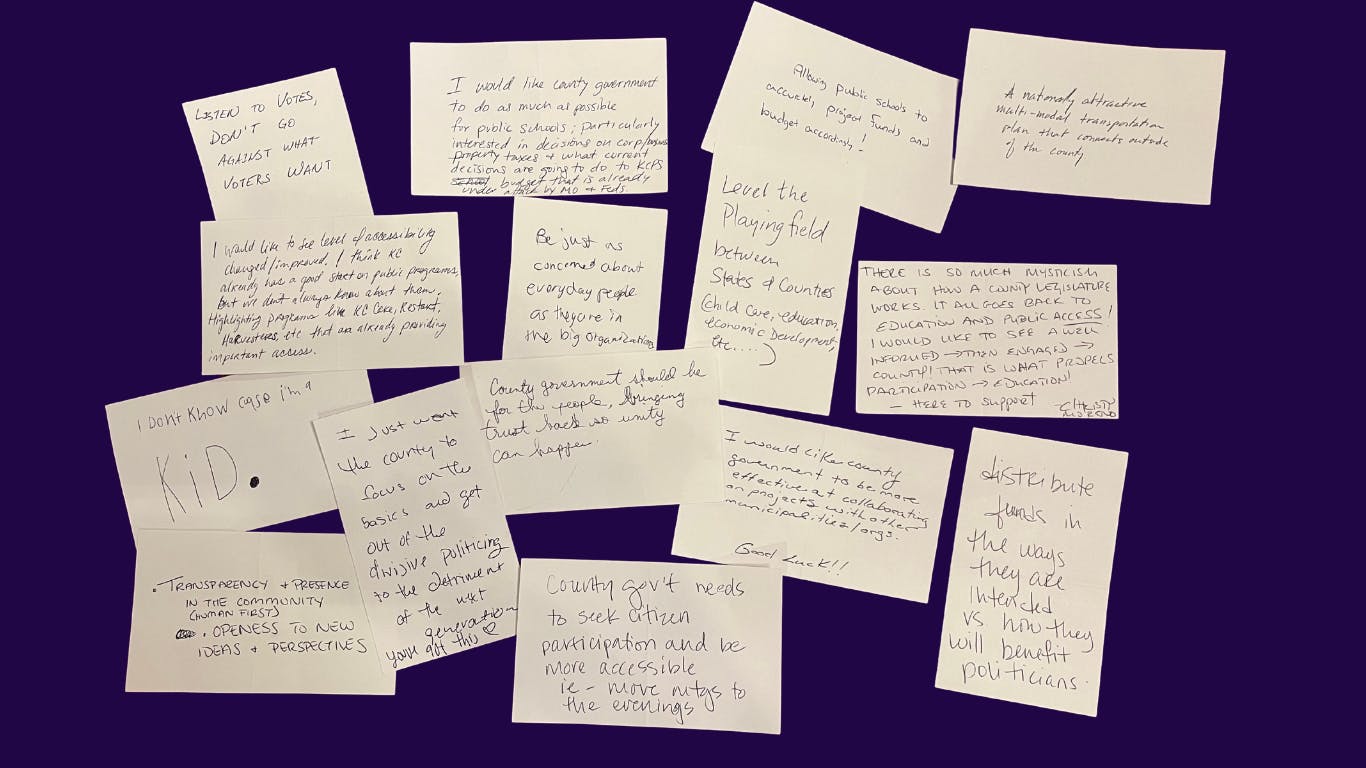 LISTEN TO VOTES,
DON'T GO
AGAINST WHAT
VOTERS WANT
I would like county government
to do as much as possible
for public schools; particularly
interested in decisions on corp/business
property taxes + what current
decisions are going to do to KCPS
budget that is already
under attack by MO + Feds.
Allowing public schools to
accurately project funds and
budget accordingly!
A nationally attractive
multi-modal transportation
plan that connects outside
of the county
I would like to see level of accessibility
changed/improved. I think KC
already has a good start on public programs,
but we don't always know about them.
Highlighting programs like KC Care, Restart,
Harvesters, etc that are already providing
important access.
Be just as
concerned about
everyday people
as they are in
the big organizations
Level the
Playingfield
between
States & Counties
(child care, education,
economic Development,
etc....)
THERE IS SO MUCH MYSTICISM
ABOUT HOW A COUNTY LEGISLATURE
WORKS. IT ALL GOES BACK TO
EDUCATION AND PUBLIC ACCESS!
I WOULD LIKE TO SEE A WELL
INFORMED → THEN ENGAGED →
COUNTY! THAT IS WHAT PROPELS
PARTICIPATION → EDUCATION!
- HERE TO SUPPORT - CHRISTY
MORENO
I DONT KNOW CASE i'm a
KiD.
I just want
the county to
focus on the
basics and get
out of the
divisive politicing
to the detriment
of the next
generation
you got this ♡
County government should be
for the people, bringing
trust back so unity
can happen.
I would like county
government to be more
effective at collaborating
on projects with other
municipalities/orgs.
Good Luck!!
distribute
funds in
the ways
they are
intended
vs how they
will benefit
politicians.
• TRANSPARENCY + PRESENCE
IN THE COMMUNITY
(HUMAN FIRST)
• OPENESS TO NEW
IDEAS + PERSPECTIVES
County gov't needs
to seek citizen
participation and be
more accessible
ie - move mtgs to
the evenings